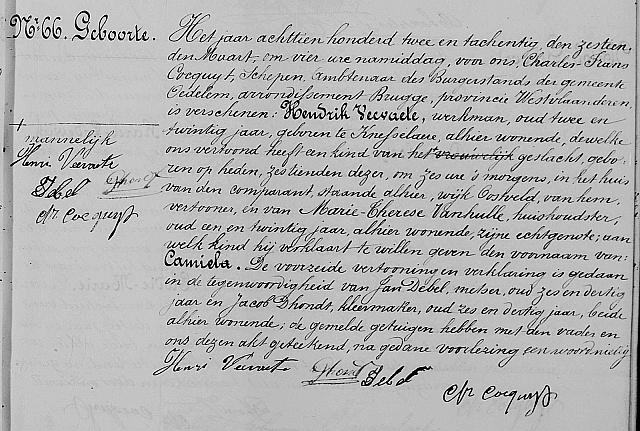 N.r 66. Geboorte.
Het jaar achttien honderd twee en tachentig, den zestien
den Maart, om vier ure namiddag, voor ons, Charles-Frans
Cocquyt, Schepen, Ambtenaar des Burgerstands der gemeente
Oedelem, arrondissement Brugge, provincie Westvlaanderen,
is verschenen: Hendrik Vervaele, werkman, oud twee en
twintig jaar, geboren te Knesselaere, alhier wonende, dewelke
ons vertoond heeft een kind van het vrouwelijk geslacht, gebo-
ren op heden, zestienden dezer, om zes ure 's morgens, in het huis
van den comparant, staande alhier, wijk Oostveld, van hem,
vertooner, en van Marie-Therese Vanhulle, huishoudster,
oud een en twintig jaar, alhier wonende, zijne echtgenote; aan
welk kind hij verklaart te willen geven den voornaam van:
Camiela. De voorzeide vertooning en verklaring is gedaan
in de tegenwoordigheid van Jan Debel, metser, oud zes en dertig
jaar en Jacob Dhondt, kleermaker, oud zes en dertig jaar, beide
alhier wonende; de gemelde getuigen hebben met den vader en
ons dezen akt geteekend, na gedane voorlezing
mannelijk
Henri
Debel
Dhondt
Ch Cocquyt
Henri
Dhondt
Debel
Ch Cocquyt